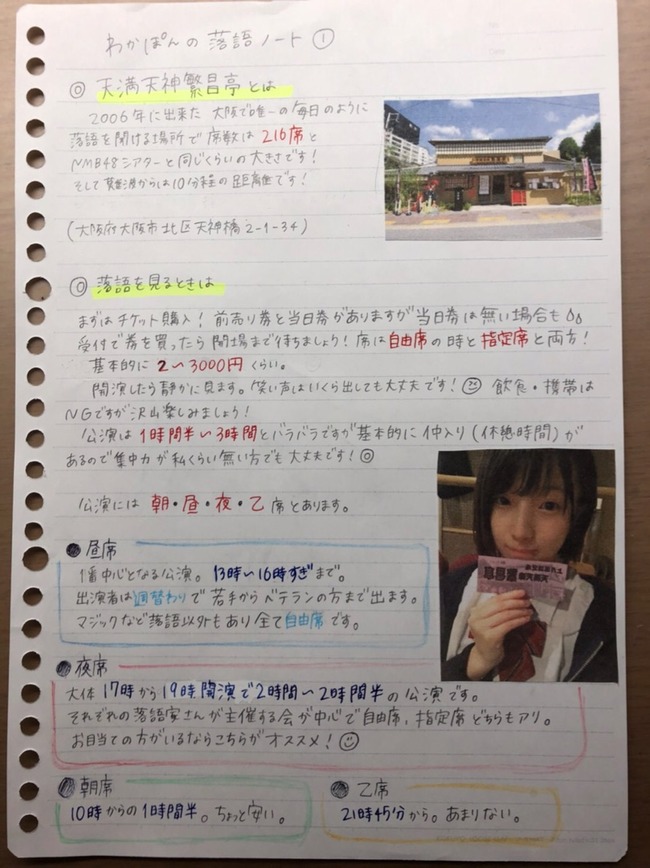 わかぽんの落語ノート①
◎ 天満天神繁昌亭とは
2006年に出来た 大阪で唯一の毎日のように
落語を聞ける場所で席数は216席と
NMB48シアターと同じくらいの大きさです!
そして難波からは10分程の距離です!
(大阪府大阪市北区天神橋2-1-34)
◎ 落語を見るときは
まずはチケット購入! 前売り券と当日券がありますが当日券は無い場合も
受付で券を買ったら開場まで待ちましょう! 席は自由席の時と指定席と両方!
基本的に 2〜3000円くらい。
開演したら静かに見ます。笑い声はいくら出しても大丈夫です! 飲食・携帯は
NGですが沢山楽しみましょう!
公演は 1時間半〜3時間とバラバラですが基本的に仲入り(休憩時間)が
あるので集中力が私くらい無い方でも大丈夫です!◎
公演には 朝・昼・夜・乙 席とあります。
●昼席
1番中心となる公演。13時〜16時すぎまで。
出演者は週替わりで若手からベテランの方まで出ます。
マジックなど落語以外もあり全て自由席です。
●夜席
大体17時から19時開演で2時間〜2時間半の公演です。
それぞれの落語家さんが主催する会が中心で自由席、指定席どちらもアリ。
お目当ての方がいるならこちらがオススメ!
●朝席
10時からの1時間半。ちょっと安い。
●乙席
21時45分から。あまりない。